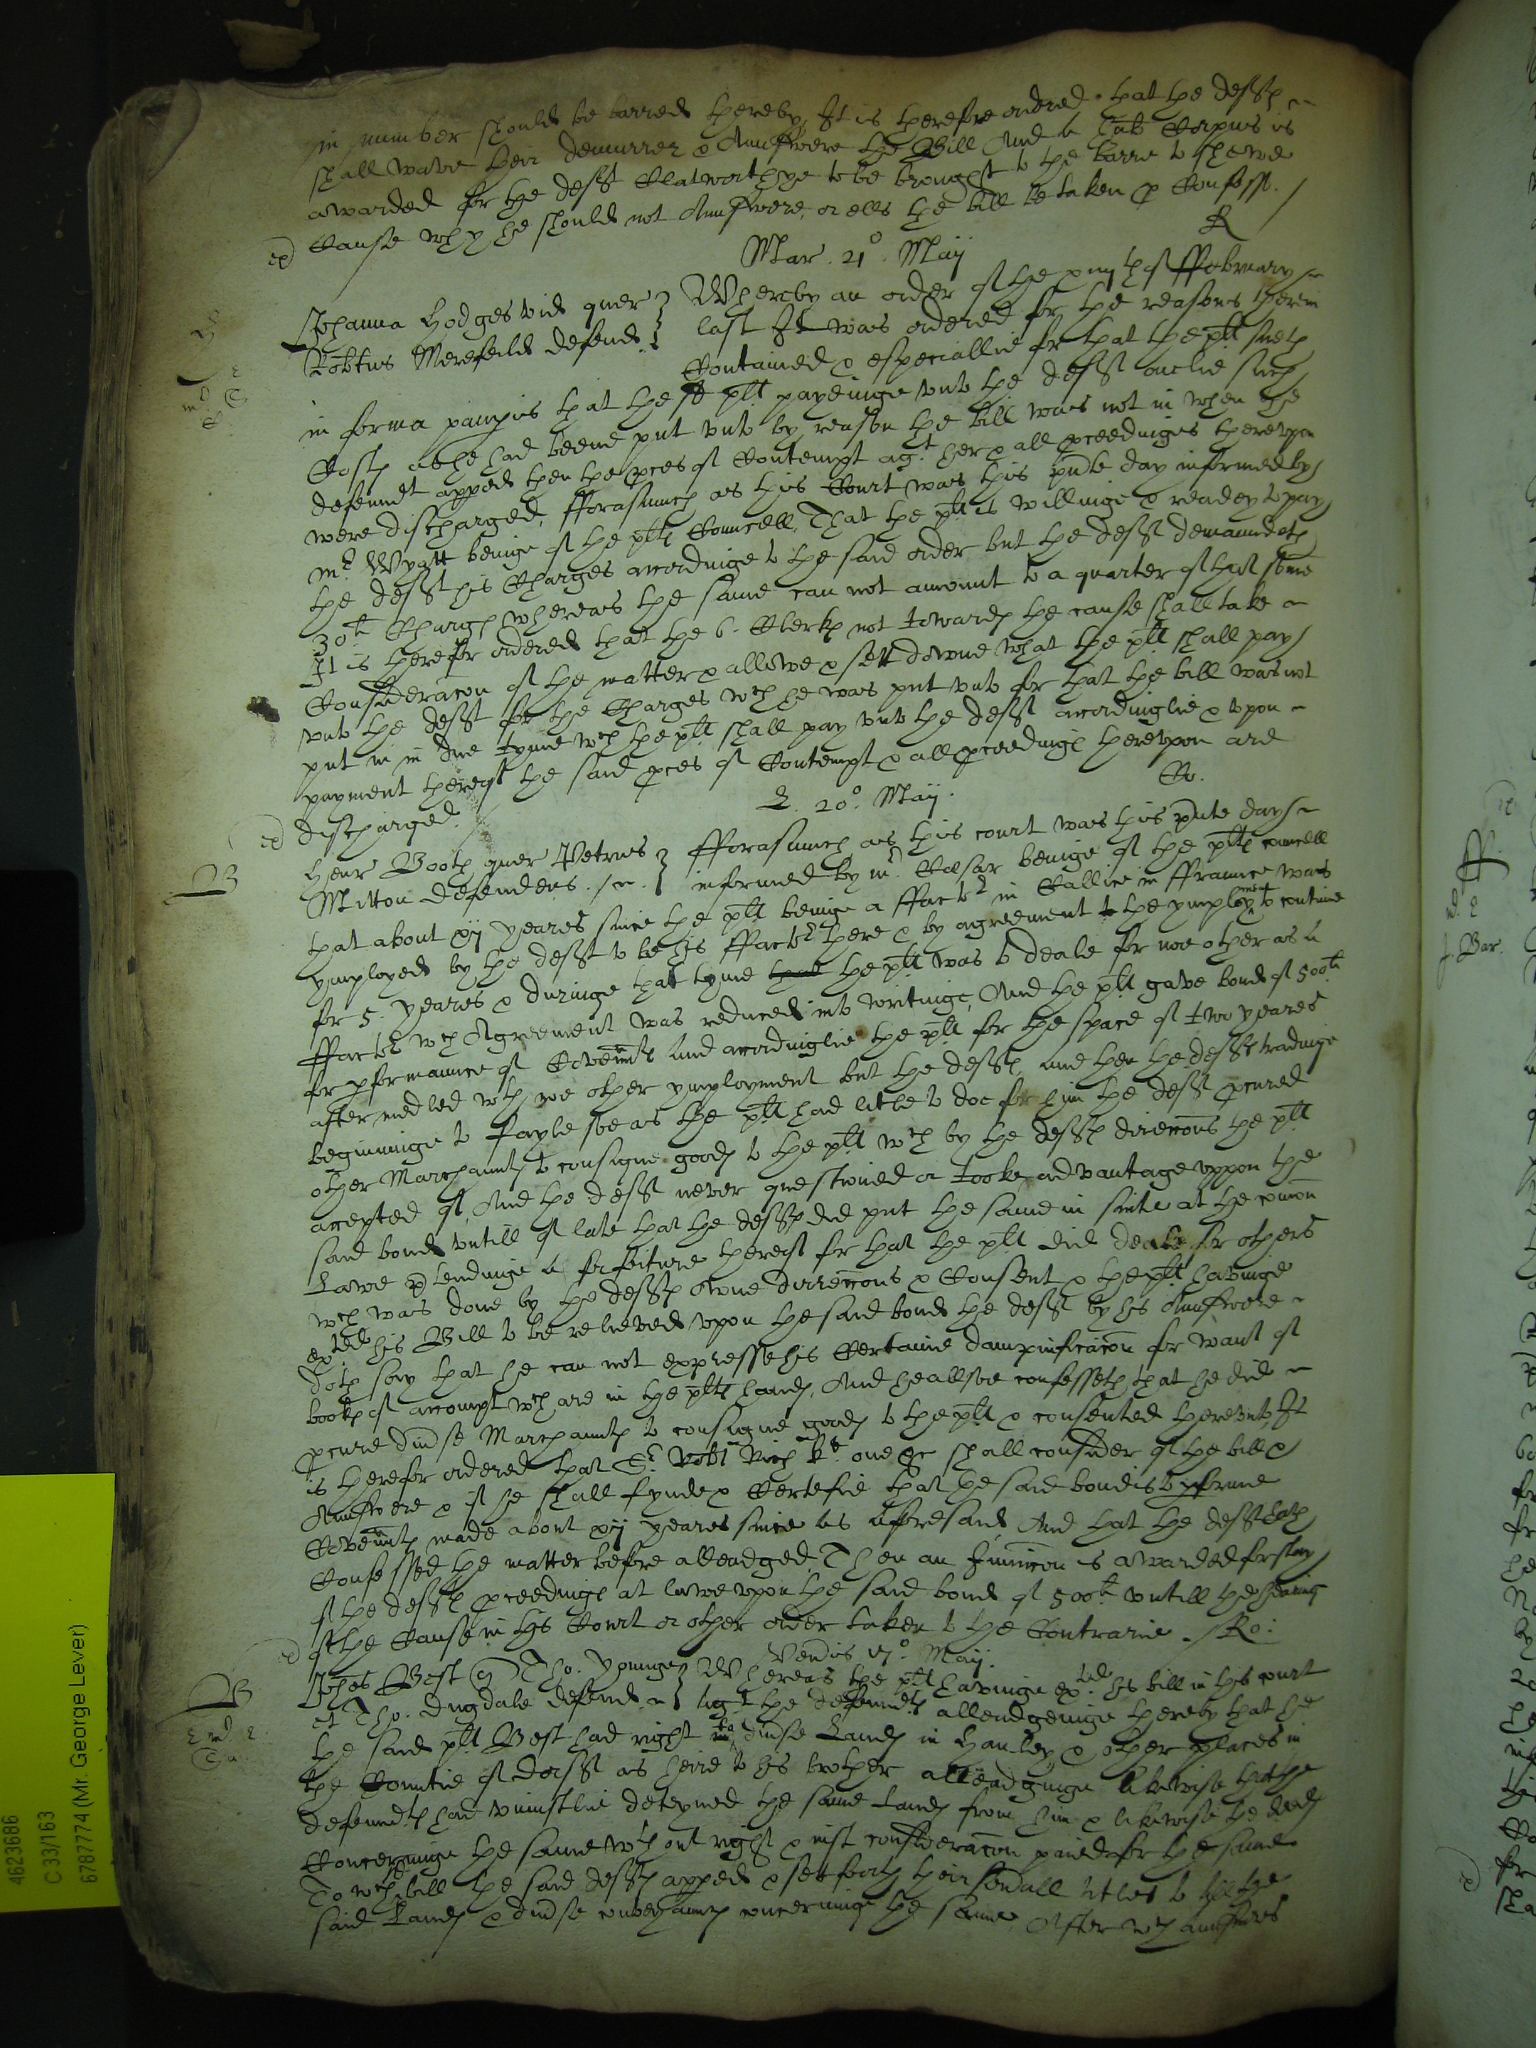 in number should be barred thereby It is therefore ordred that the defts
shall waive their demurrer & Answere the Bill And a Hab Corpus is
awarded for the deft Clatworthye to be brought to the barre to shewe
Cause why he should not Answere, or ells the bill be taken p Confesso.
R
Mar. 21o. Maij
Johanna Hodges vid quer } Whereby an order of the xiiijth of ffebruary
Robtus Merefeild defend } last It was ordered for the reasons therein
Contained & especiallie for that the plt sueth
in forma paupis that the sd plt payeinge unto the deft onelie such
Costs as he had beene put unto by reason the bill was not in when the
defendt apped then the pces of Contempt agt her & all pceedinges thereupon
were discharged, fforasmuch as this Court was this pnte day informed by
mr Wyatt beinge of the plts Councell, That the plt is willinge & readey to pay
the deft his Charges accordinge to the said order but the deft demaundeth
30li Charges whereas the same can not amount to a quarter of that some
It is therefor ordered that the 6. Clerkes not towardes the cause shall take
Consideracon of the matter & allowe & sett downe what the plt shall pay
unto the deft for the Charges wch he was put unto for that the bill was not
put in in due tyme wch the plt shall pay unto the deft accordinglie & upon
payment thereof the said pces of Contempt & all pceedinges thereupon are
discharged.
Co.
L. 20o. Maij.
B
Henr Booth quer Petrus } fforasmuch as this court was this pnte day
Mitton defendens } informed by mr Cæsar beinge of the plts councell
that about xij yeares since the plt beinge a ffactor in Callice in ffraunce was
ymployed by the deft to be his ffactor there & by agreement the ymploymt to continue
for 5. yeares & duringe that tyme the plt was to deale for noe other as a
ffactor wch Agreement was reduced into writinge, And the plt gave bond of 500li
for pformaunce of Covenants And accordinglie the plt for the space of two yeares
after medled with noe other ymployment but the defts, and then the defts tradinge
beginninge to fayle soe as the plt had litle to doe for him the deft pcured
other Marchaunts to consigne goods to the plt wch by the defts direccons the plt
accepted of, And the deft never questioned or tooke advantage uppon the
said bond untill of late that the deft did put the same in suite at the comon
Lawe ptendinge a forfeiture thereof for that the plt did deale for others
wch was done by the defts owne direccons & Consent & the plt havinge
exted his Bill to be relieved upon the said bond the deft by his Answere
doth say that he can not expresse his Certaine dampnificacon for want of
bookes of accompt wch are in the plts hands, And he allsoe confesseth that he did
pcure divse Marchaunts to consigne goods to the plt & consented thereunto It
is therefor ordered that Sr Robt Rich kt. one &c shall consider of the bill &
Answere & if he shall fynde & Certefie that the said bond is to pforme
Covenants made about xij yeares since as aforesaid, And that the deft hath
Confessed the matter before alleadged, Then an Iniunccon is awarded for stay
of the defts pceedinges at lawe upon the said bond of 500li untill the hearing
of the Cause in this Court or other order taken to the Contrarie. Ro:
Venris 17o. Maij.
B
Johes Best & Tho. Younge } Whereas the plt havinge exted his bill in this court
et Tho. Dugdale defend } agt the defendts alleadgeinge thereby that he
the said plt Best had right to divse Lands in Hanley & other places in
the Countie of as heire to his brother alleadginge likewise that the
defendts had uniustlie deteyned the same Lands from him & likewise the deeds
Concerninge the same wth out right & iust consideracon paied for the same
To wch bill the said defts apped & sett forth their sevall titles to the
said Lands & divse conveyaunces concerninge the same After wch answeres
ff
J. Bar.
4623686
C 33/163
6787774 (Mr. George Lever)